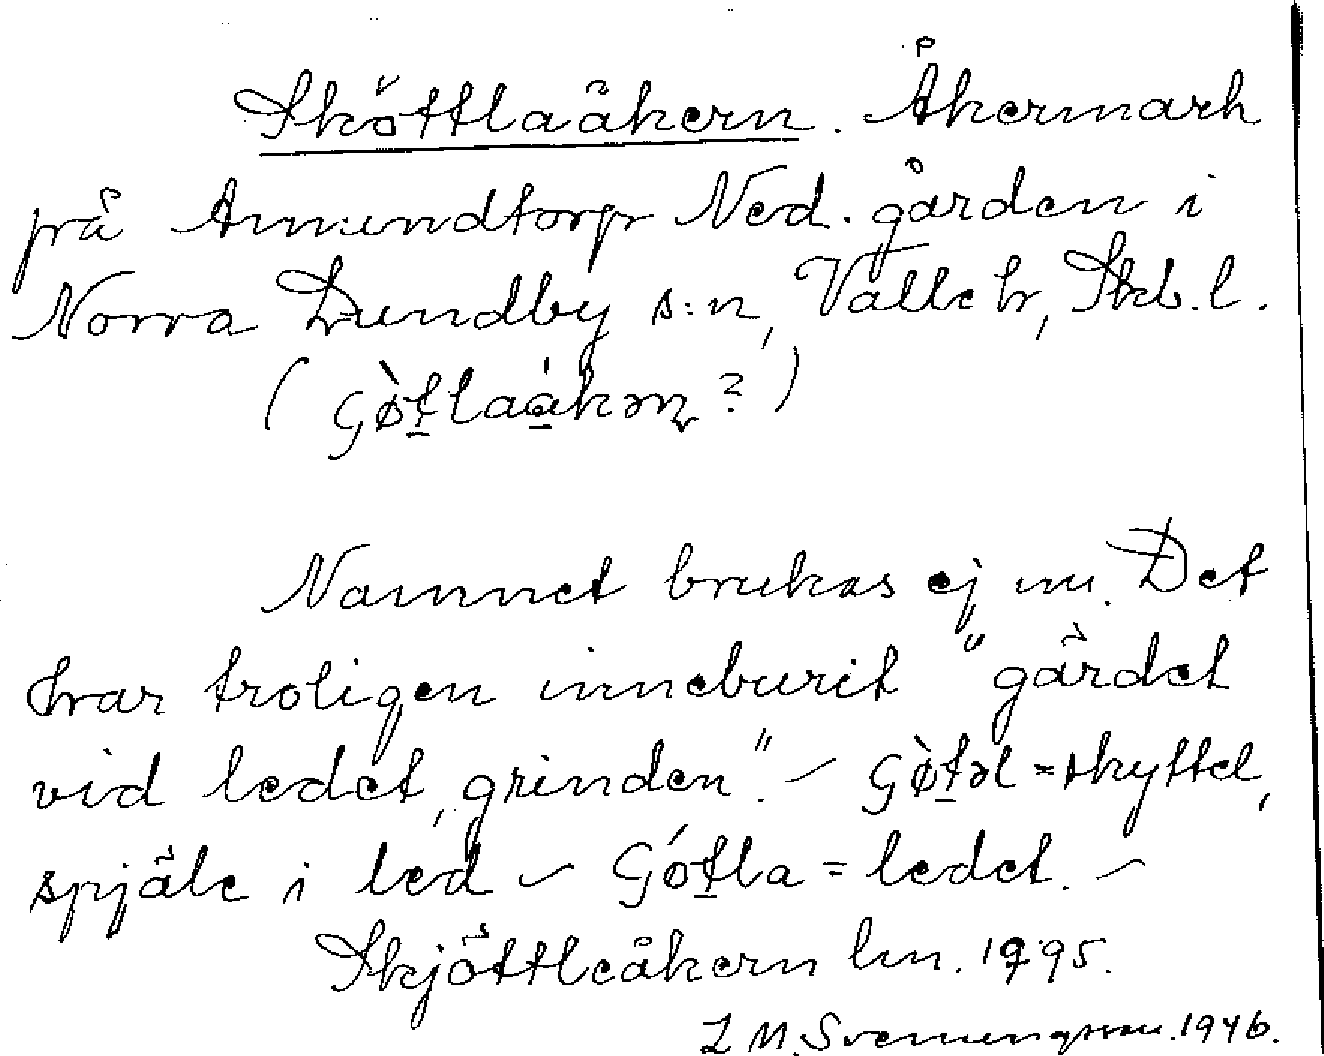 Sköttlaåkern. Åkermark
på Amundtorp Ned. gården i
Norra Lundby s:n, Valle h, Skb.l.
(Gø̀t̲laå̲kəɲ?)
Namnet brukas ej nu. Det
har troligen inneburit "gärdet
vid ledet, grinden". – Gø̀t̲əl = skyttel,
spjäle i led – Gót̲la = ledet. –
Skjöttleåkern lm. 1795.
L M. Svenungsson. 1946.